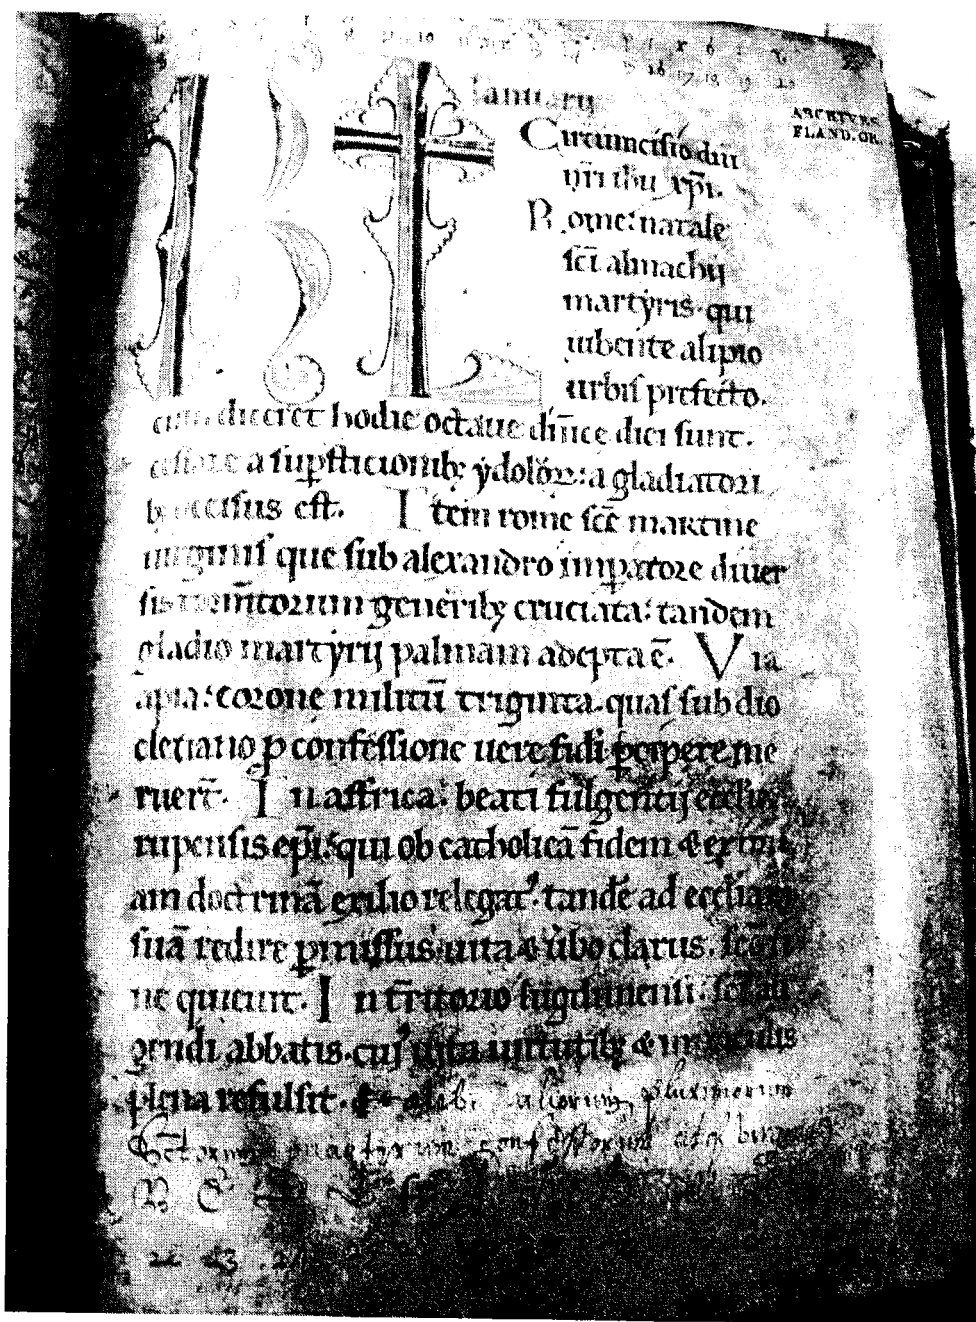 Ianuarij
ARCHIVES
FLAND. OR.
Circumcisio dñi
nr̄i ihu xp̄i.
Rome: natale
sc̄i almachij
martẏris. qui
iubente alipio
urbis prefecto.
cum diceret hodie octaue dn̄ice diei sunt.
cessate a sup̱sticionibꝫ ẏdoloꝝ: a gladiatori
bꝫ occisus est. Item rome sc̄e martine
uirginis que sub alexandro imꝑatore diuer
sis tormētorum generibꝫ cruciata: tandem
gladio martẏrij palmam adepta ē. Via
apia: corone militū triginta. quas sub dio
cletiano ꝑ confessione uere fidi ꝑcipere me
ruer̄t. In affrica: beati fulgentij eccl̄ie
rupensis ep̄i. qui ob catholicā fidem & eximi
am doctrinā exilio relegatꝰ. tandē ad eccl̄iam
suā redire ꝑmissus. uita & ùbo clarus. sc̄o fi
ne quieuit. In t̄ritorio lugdunensi: sc̄i au
gendi abbatis. cuiꝰ uita uirtutibꝫ & miraculis
plena refulsit. & alibi aliorum plurimorum
Sctorum martyrum confessorum atqꝫ
B C
22 23 24